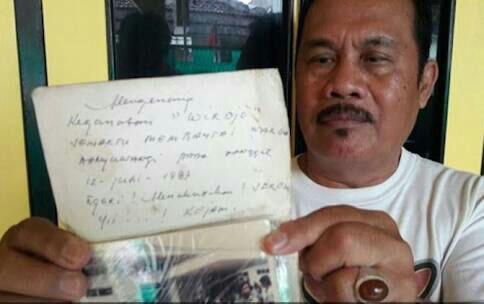 Mengenang
Keganasan "WIRDJO"
SEWAKTU MEMBANTAI WARGA
BANYUWANGI PADA TANGGAL
12-Juni-1987
Ngeri! Menakutkan! SEREM
Hi.....! KEJAM.